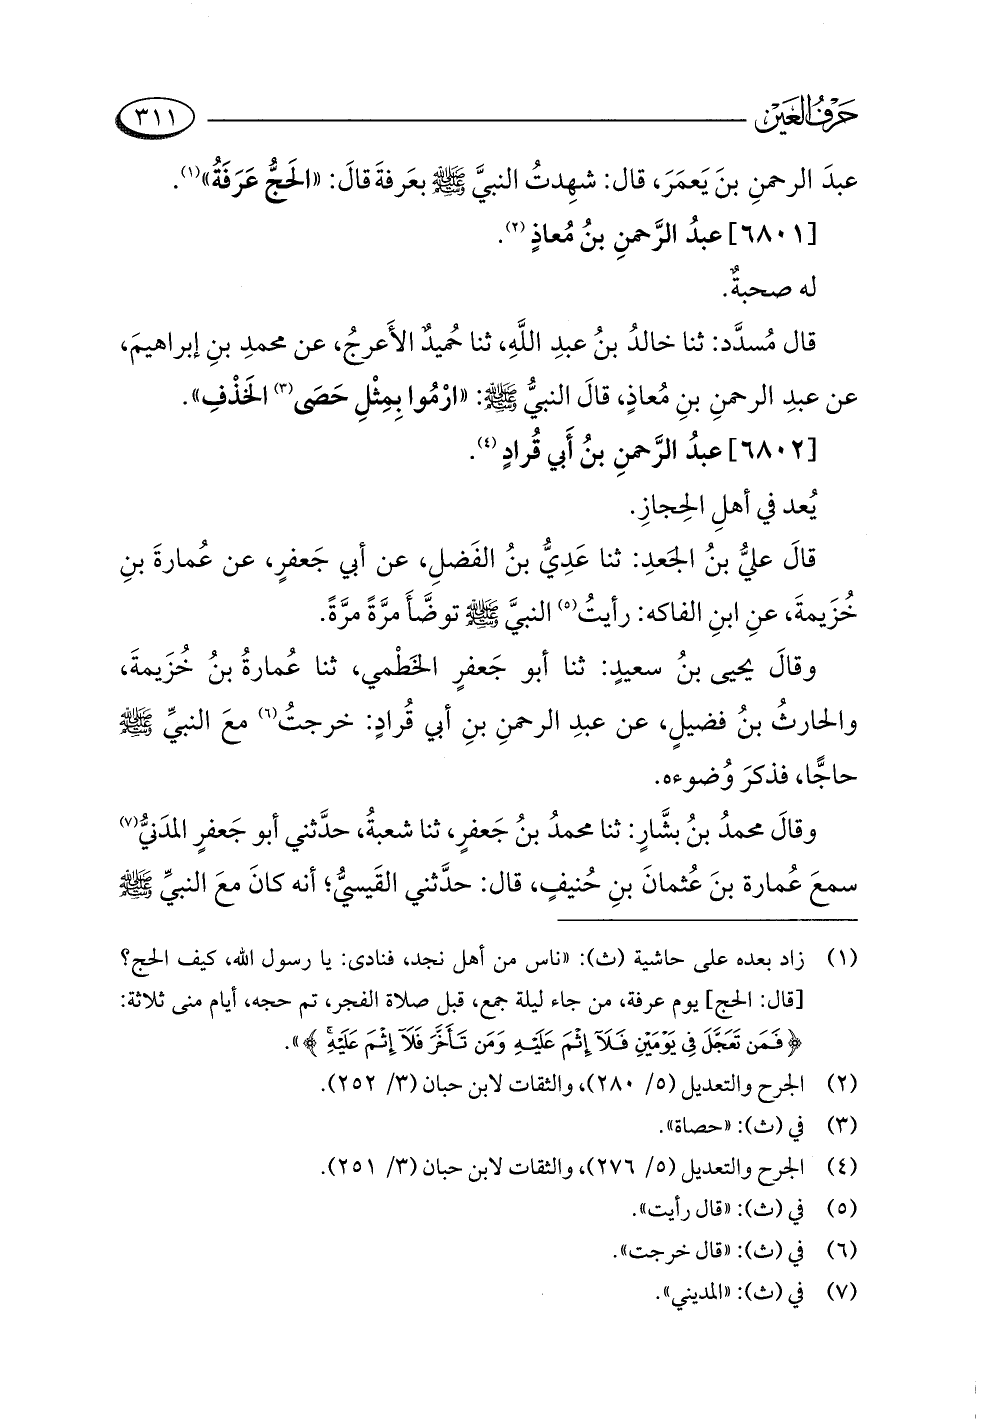 حَرْفُ العَيْن
٣١١
عبدَ الرحمنِ بنَ يَعمَرَ، قال: شهِدتُ النبيَّ ﷺ بعَرفةَ قالَ: «الحَجُّ عَرَفَةُ»(١).
[٦٨٠١] عبدُ الرَّحمنِ بنُ مُعاذٍ (٢).
له صحبةٌ.
قال مُسدَّد: ثنا خالدُ بنُ عبدِ اللَّهِ، ثنا حُميدٌ الأَعرجُ، عن محمدِ بنِ إبراهيمَ،
عن عبدِ الرحمنِ بنِ مُعاذٍ، قالَ النبيُّ ﷺ: «ارْمُوا بِمِثْلِ حَصَى(٣) الخَذْفِ».
[٦٨٠٢] عبدُ الرَّحمنِ بنُ أَبي قُرادٍ (٤).
يُعد في أهلِ الحِجازِ.
قالَ عليُّ بنُ الجَعدِ: ثنا عَدِيُّ بنُ الفَضلِ، عن أبي جَعفرٍ، عن عُمارةَ بنِ
خُزَيمةَ، عنِ ابنِ الفاكه: رأيتُ(٥) النبيَّ ﷺ توضَّأَ مرَّةً مرَّةً.
وقالَ يحيى بنُ سعيدٍ: ثنا أبو جَعفرٍ الخَطْمي، ثنا عُمارةُ بنُ خُزَيمةَ،
والحارثُ بنُ فضيلٍ، عن عبدِ الرحمنِ بنِ أبي قُرادٍ: خرجتُ(٦) معَ النبيِّ ﷺ
حاجًّا، فذكرَ وُضوءه.
وقالَ محمدُ بنُ بشَّارٍ: ثنا محمدُ بنُ جَعفرٍ، ثنا شعبةُ، حدَّثني أبو جَعفرٍ المدَنيُّ(٧)
سمعَ عُمارة بنَ عُثمانَ بنِ حُنيفٍ، قال: حدَّثني القَيسيُّ؛ أنه كانَ معَ النبيِّ ﷺ
(١) زاد بعده على حاشية (ث): «ناس من أهل نجد، فنادى: يا رسول الله، كيف الحج؟
[قال: الحج] يوم عرفة، من جاء ليلة جمع، قبل صلاة الفجر، تم حجه، أيام منى ثلاثة:
﴿فَمَن تَعَجَّلَ فِى يَوْمَيْنِ فَلَآ إِثْمَ عَلَيْهِ وَمَن تَأَخَّرَ فَلَآ إِثْمَ عَلَيْهِ﴾».
(٢) الجرح والتعديل (٥/ ٢٨٠)، والثقات لابن حبان (٣/ ٢٥٢).
(٣) في (ث): «حصاة».
(٤) الجرح والتعديل (٥/ ٢٧٦)، والثقات لابن حبان (٣/ ٢٥١).
(٥) في (ث): «قال رأيت».
(٦) في (ث): «قال خرجت».
(٧) في (ث): «المديني».